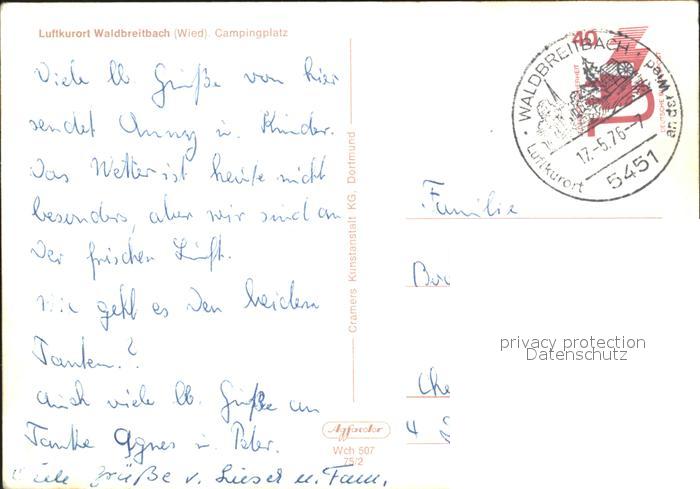 Luftkurort Waldbreitbach (Wied). Campingplatz
Viele lb. Grüße von hier
sendet Anny u. Kinder.
Das Wetter ist heute nicht
besonders, aber wir sind an
der frischen Luft.
Wie geht es den beiden
Tanten?
Auch viele lb. Grüße an
Tante Agnes u. Peter.
Viele Grüße v. Liesel u. Fam.
Cramers Kunstanstalt KG, Dortmund
Agfacolor
Wch 507
75/2
40
WALDBREITBACH · an der Wied
17.-5.76-7
Luftkurort
5451
Familie
privacy protection
Datenschutz
4